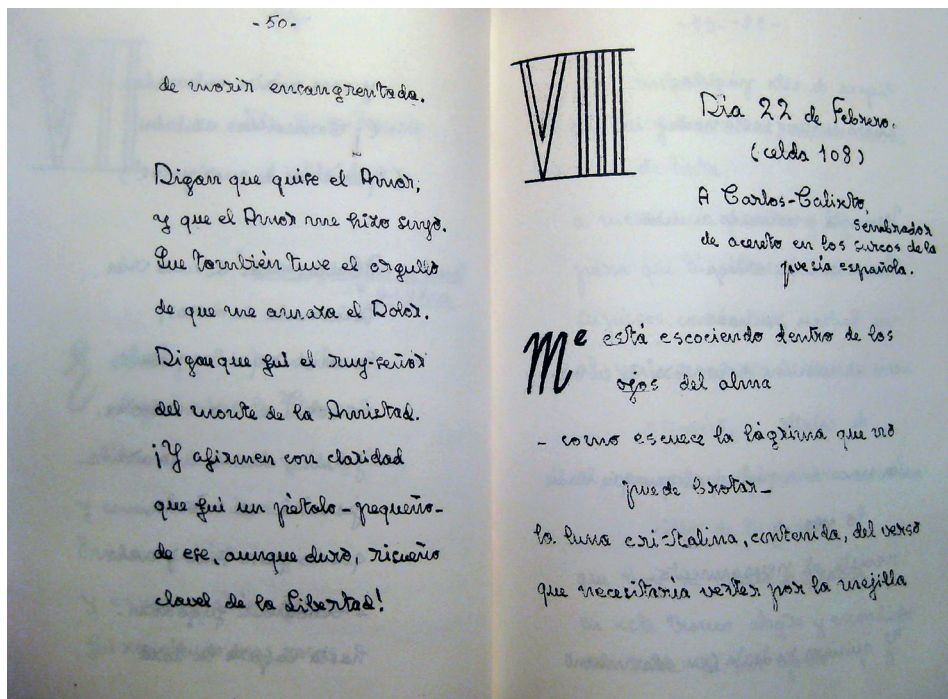 -50-
de morir encangrentada.
Digan que quise el Amor,
y que el Amor me hizo suyo.
Que también tuve el orgullo
de que me amara el Dolor.
Digan que fuí el ruy-señor
del monte de la Amistad.
¡Y afirmen con claridad
que fuí un pétalo-pequeño-
de ese, aunque duro, risueño
clavel de la Libertad!
VIII
Día 22 de Febrero.
(celda 108)
A Carlos-Calixto,
sembrador
de acento en los surcos de la
poesía española.
Me está escociendo dentro de los
ojos del alma
- como escuece la lágrima que no
puede brotar-
la luna cristalina, contenida, del verso
que necesitaria verter por la mejilla